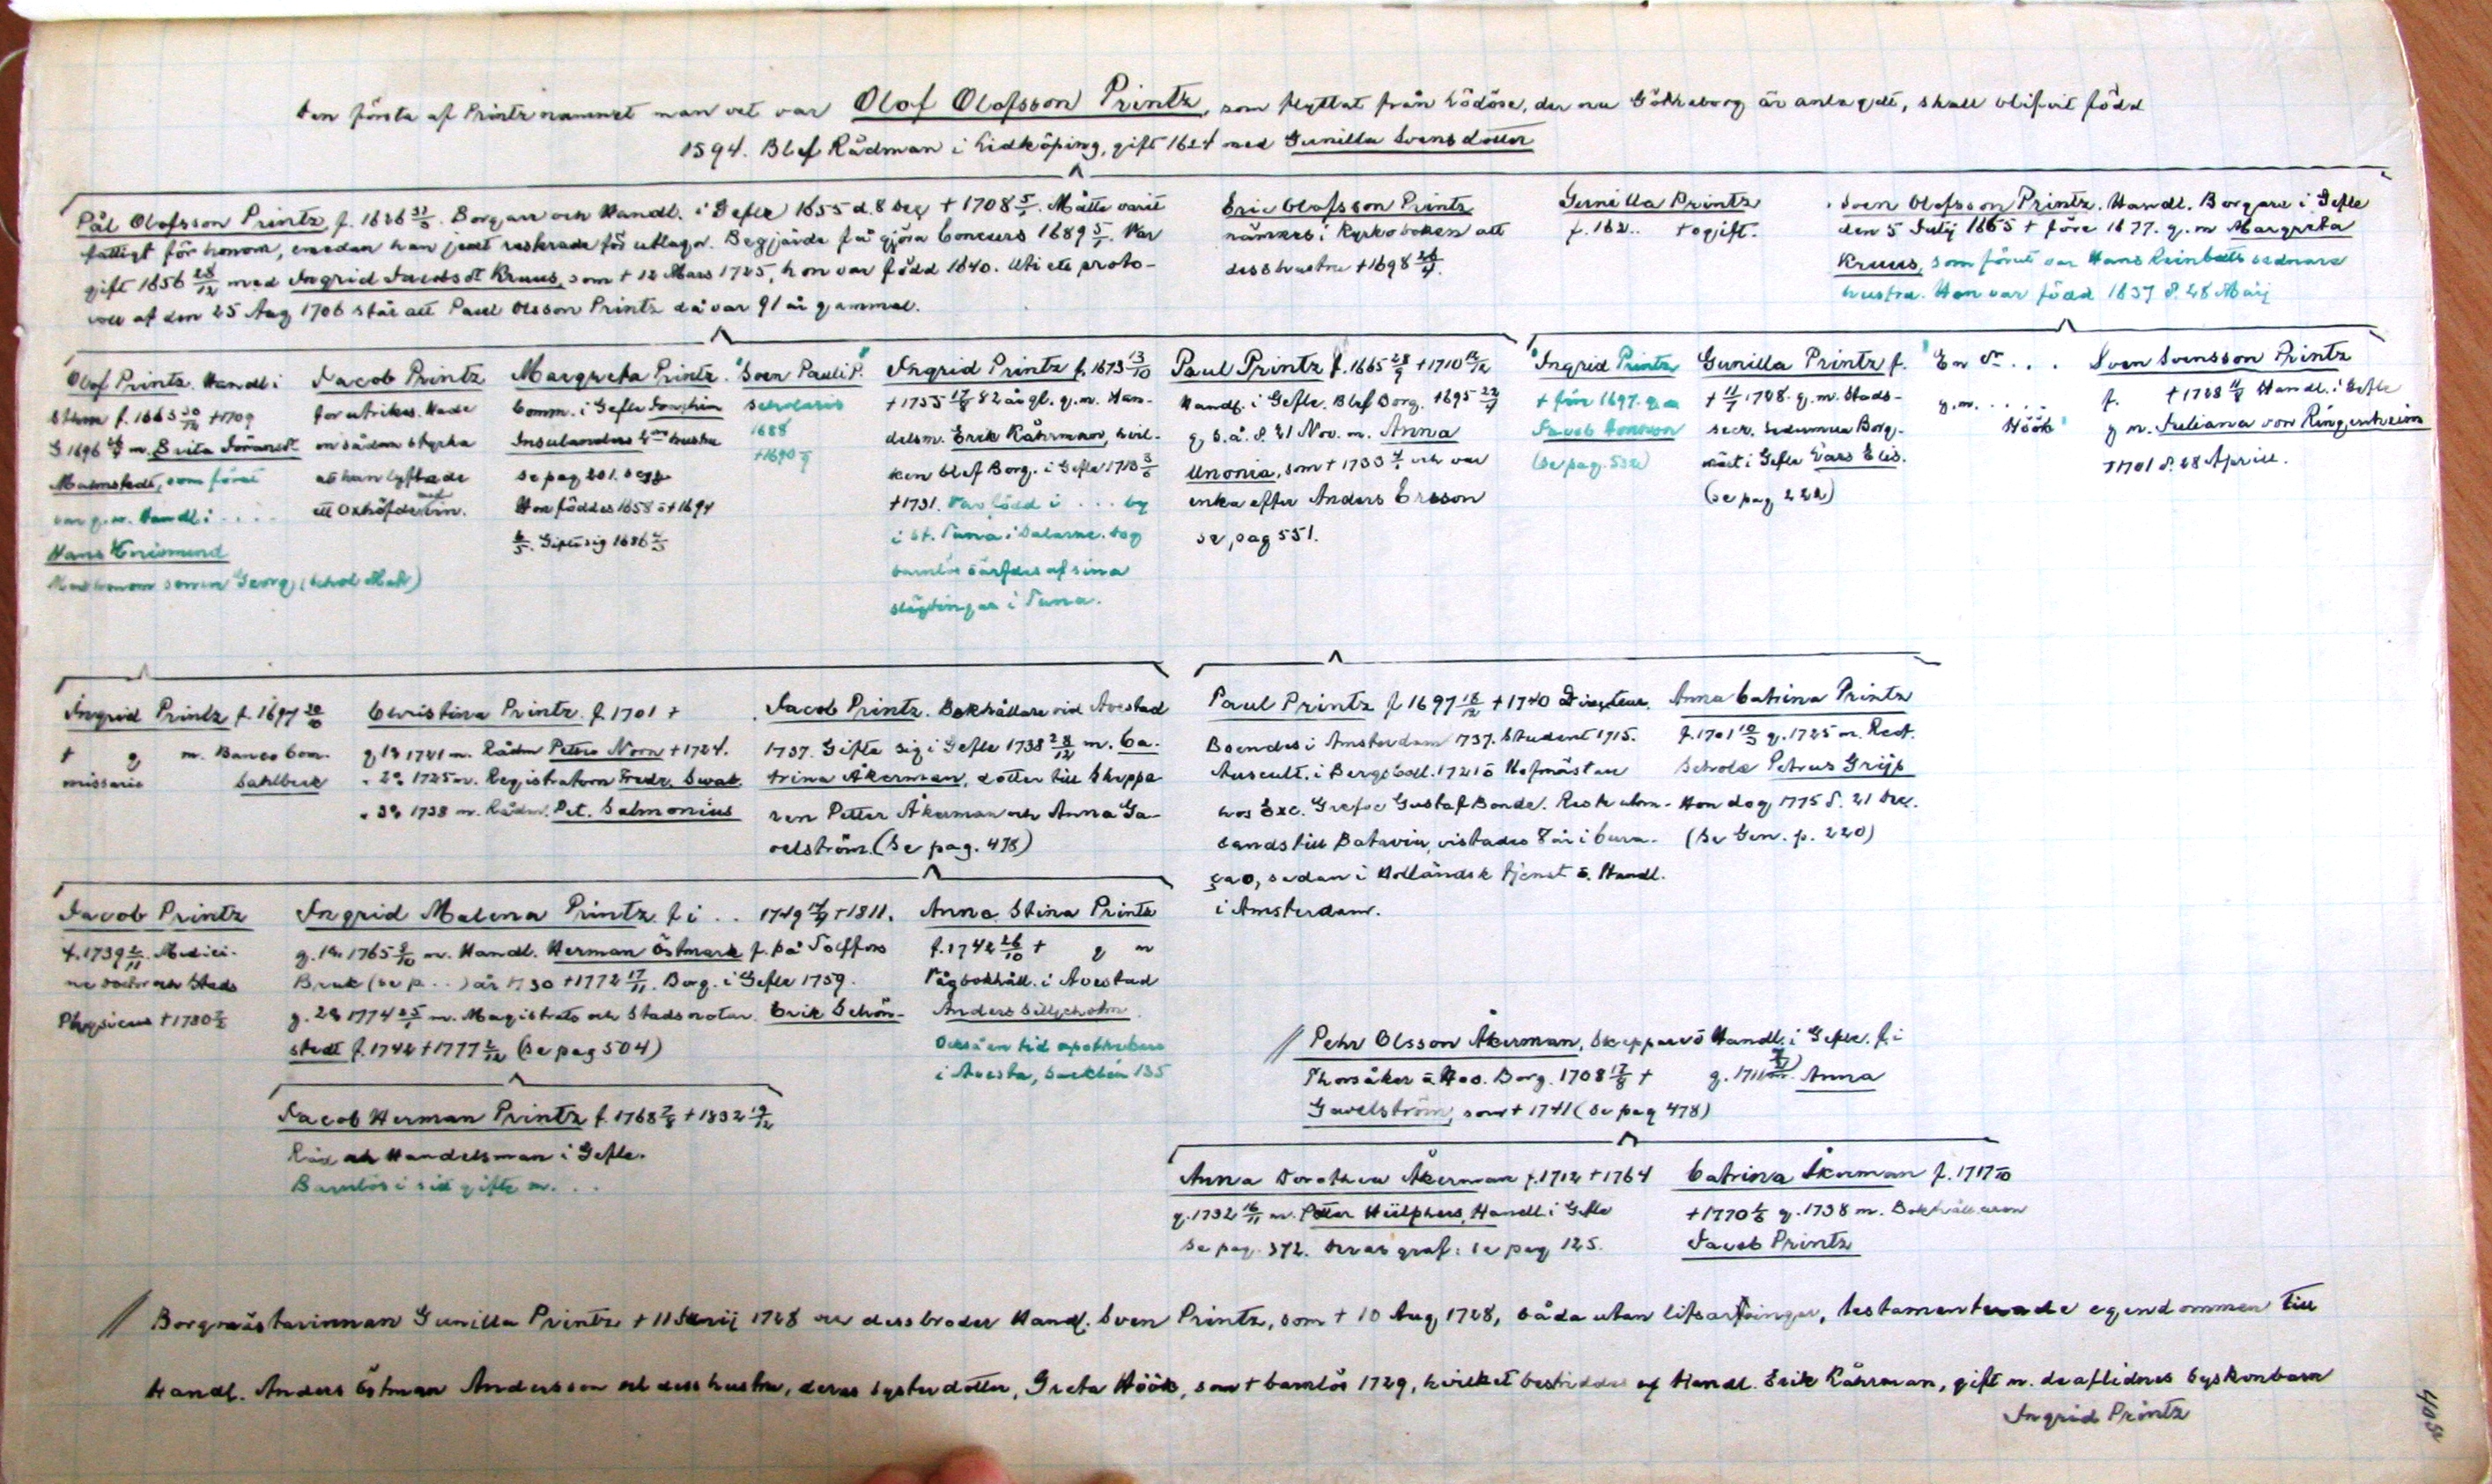 Den första af Printz namnet man vet var Olof Olofsson Printz, som flyttat från Lödöse, der nu Götheborg är anlagdt, skall blifvit född
1594. Blef Rådman i Lidköping, gift 1624 med Gunilla Svensdotter
Pål Olofsson Printz, f. 1626 31/5. Borgare och Handl. i Gefle 1655 d. 8 Dec + 1708 5/1. Måtte varit
fattigt för honom, emedan han jemt resterade för utlagor. Begjärde få gjöra Concurs 1689 5/1. Var
gift 1656 28/12 med Ingrid Jacobsdt Kruus, som + 12 Mars 1725, hon var född 1640. Uti ett proto-
coll af den 25 Aug 1706 står att Paul Olsson Printz då var 91 år gammal.
Eric Olofsson Printz
nämnes i Kyrkoboken att
dess hustru +1698 26/4.
Gunilla Printz
f. 162.. + ogift.
Sven Olofsson Printz. Handl. Borgare i Gefle
den 5 Julij 1665 + före 1677. g. m Margreta
Kruus, som förut var Hans Reinbolts sednare
hustru. Hon var född 1637 d. 28 Maij
Olof Printz. Handl i
Sthm f. 1663 30/12 +1709
G 1696 m. Brita Göransdt
Malmstedt, som förut
var g. m. Handl i . . . .
Hans
Med honom sonen Georg (
Jacob Printz
for utrikes. Hade
en sådan styrka
att han lyftade
ett Oxhöfde med vin.
Margreta Printz.
Comm. i Gefle Joachim
Insulanders 2dra hustru
se pag 201.
Hon föddes 1658 o + 1694
6/5. Gifte sig 1686
"Sven Pauli P."
Scholaris
1688
+1690
Ingrid Printz f. 1673 13/10
+1755 17/8 82 år gl. g. m. Han-
delsm. Erik Kåhrman, hvil-
ken blef Borg. i Gefle 1713
+1731. Var född i . . . by
i St. Tuna i Dalarne. Dog
barnlös o ärfdes af sina
slägtingar i Tuna.
Paul Printz f. 1665 28/9 +1710 12/12
Handl. i Gefle. Blef Borg. 1695 22/4
g. s. å. d. 21 Nov. m. Anna
Unonia, som + 1733 och var
enka efter Anders Ersson
se pag 551.
"Ingrid Printz
+ före 1697. g. m
Jacob
(se pag. 532)
Gunilla Printz f.
+ 11/7 1728. g. m. Stads-
secr. sedermera Borg-
mäst i Gefle Lars Elis.
(se pag 222)
"En dr . . . .
g. m. . . . .
Höök"
Sven Svensson Printz
f. +1728 Handl. i Gefle
g m. Juliana von Ringenheim
1701 d. 28 Aprill.
Ingrid Printz f. 1697
+ g m. Banco Com-
missarie Sahlbeck
Christina Printz. f. 1701 +
g 1o 1721 m. Rådm Petrus Noræ +1724.
" 2o 1725 m. Registratorn Fredr. Swab.
" 3o 1738 m. Rådm. Pet. Salmonius
Jacob Printz. Bokhållare vid Avestad
1737. Gifte sig i Gefle 1738 28/12 m. Ca-
trina Åkerman, dotter till Skeppa-
ren Petter Åkerman och Anna Ga-
velström. (Se pag. 478)
Paul Printz f 1697 18/12 +1740 Directeur.
Boendes i Amsterdam 1737. Student 1715.
Auscult. i Bergscoll. 1721 o Hofmästare
hos Exc. Grefve Gustaf Bonde. Reste utom-
lands till Batavia, vistades 8 år i Cura-
çao, sedan i Holländsk tjenst o. Handl.
i Amsterdam.
Anna Catrina Printz
f. 1701 10/3 g. 1725 m. Rect.
Scholæ Petrus Grijp
Hon dog 1775 d. 21 Dec.
(Se Gen. p. 220)
Jacob Printz
f. 1739 2/11. Medici-
ne doctor och Stads
Physicus +1780
Ingrid Malena Printz f. i . . 1749 +1811.
g. 1o 1765 m. Handl. Herman Östmark f. på Tolffors
Bruk (se p. . .) år 1730 +1772 17/11. Borg. i Gefle 1759.
g. 2o 1774 25/1 m. Magistrats och Stadsnotar. Erik Schön-
stedt f. 1742 +1777 (se pag 504)
Anna Stina Printz
f. 1742 26/10 + g m
Vågbokhåll. i Avestad
Anders Silfverholm
Också en tid apothekare
i Avesta, 135
Jacob Herman Printz f. 1768 +1832
Råd och Handelsman i Gefle.
Barnlös i sitt gifte m. . .
// Pehr Olsson Åkerman, Skeppare o Handl. i Gefle. f. i
Thorsåker o Hos. Borg. 1708 17/8 + g. 1711 m. Anna
Gavelström, som + 1741 (se pag 478)
Anna Dorothea Åkerman f. 1712 +1764
g. 1732 16/11 m. Petter Hülphers, Handl. i Gefle
se pag. 372. Deras graf: se pag 125.
Catrina Åkerman f. 1717
+1770 g. 1738 m. Bokhållaren
Jacob Printz
// Borgmästarinnan Gunilla Printz + 11 Junij 1728 och dess broder Handl. Sven Printz, som + 10 Aug 1728, båda utan lifsarfvingar, testamenterade egendommen till
Handl. Anders Östman Andersson och dess hustru, deras systerdotter, Greta Höök, som + barnlös 1729, hvilket bestriddes af Handl. Erik Kåhrman, gift m. de aflidnes Syskonbarn
Ingrid Printz
403